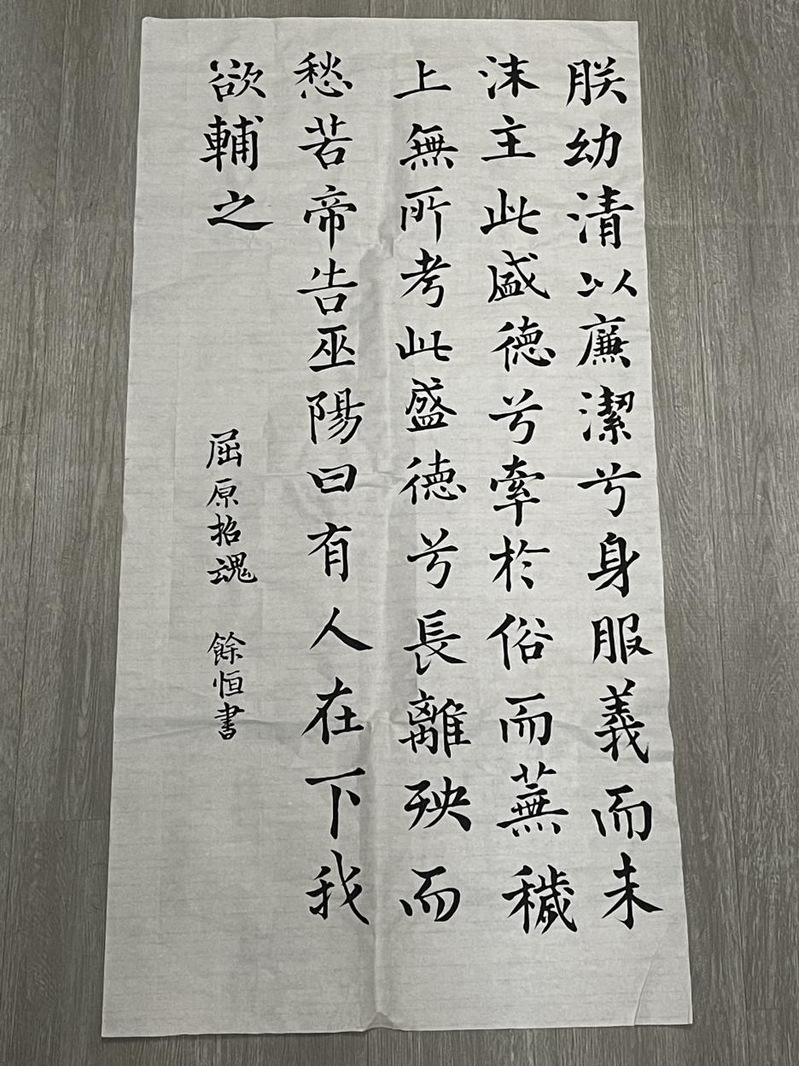 朕幼清以廉潔兮身服義而未
沫主此盛德兮牽於俗而蕪穢
上無所考此盛德兮長離殃而
愁苦帝告巫陽曰有人在下我
欲輔之
屈原招魂 餘恒書